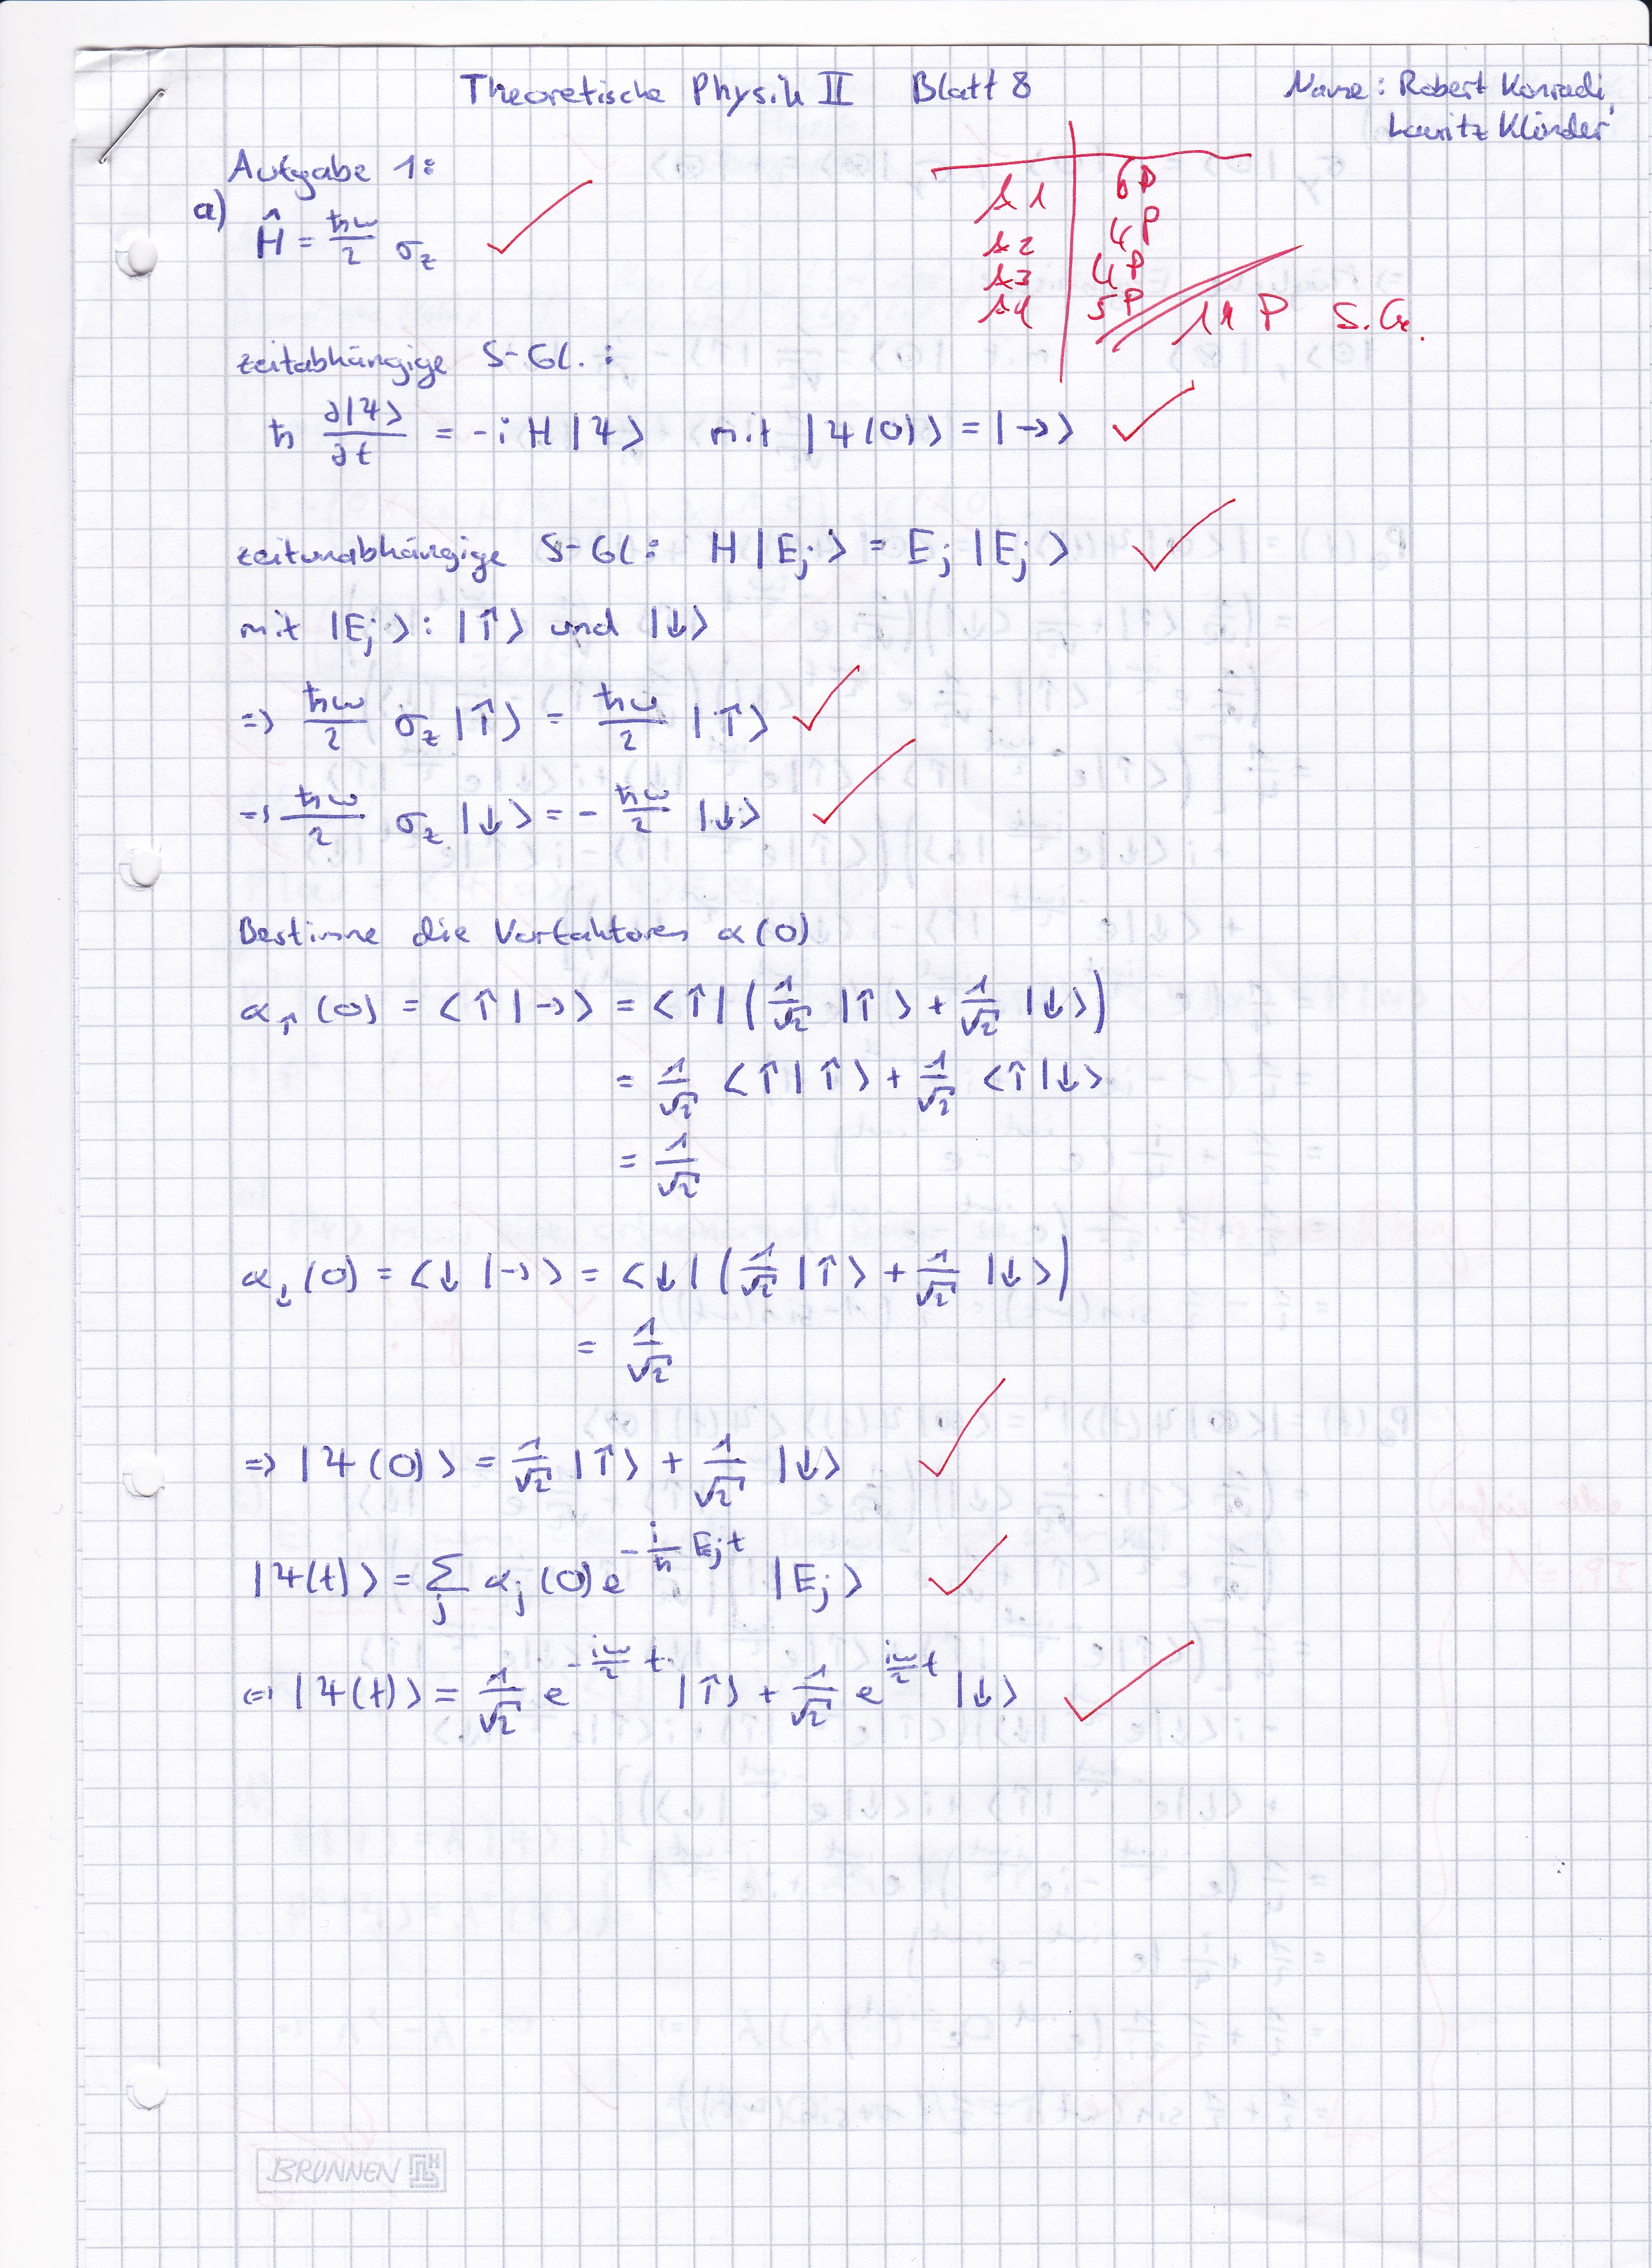 Theoretische Physik II Blatt 8
Name: Robert Konradi,
Lauritz Klünder
Aufgabe 1:
A1 6P
A2 4P
A3 4P
A4 5P
19 P S.G.
a) Ĥ = ħω/2 σ_z
zeitabhängige S-Gl.:
ħ ∂|Ψ⟩/∂t = -i H |Ψ⟩ mit |Ψ(0)⟩ = |→⟩
zeitunabhängige S-Gl: H |E_j⟩ = E_j |E_j⟩
mit |E_j⟩: |↑⟩ und |↓⟩
=> ħω/2 σ_z |↑⟩ = ħω/2 |↑⟩
=> ħω/2 σ_z |↓⟩ = - ħω/2 |↓⟩
Bestimme die Vorfaktoren α(0)
α_↑(0) = ⟨↑|→⟩ = ⟨↑| (1/√2 |↑⟩ + 1/√2 |↓⟩)
= 1/√2 ⟨↑|↑⟩ + 1/√2 ⟨↑|↓⟩
= 1/√2
α_↓(0) = ⟨↓|→⟩ = ⟨↓| (1/√2 |↑⟩ + 1/√2 |↓⟩)
= 1/√2
=> |Ψ(0)⟩ = 1/√2 |↑⟩ + 1/√2 |↓⟩
|Ψ(t)⟩ = Σ_j α_j(0) e^{-i/ħ E_j t} |E_j⟩
<=> |Ψ(t)⟩ = 1/√2 e^{-iω/2 t} |↑⟩ + 1/√2 e^{iω/2 t} |↓⟩
BRUNNEN